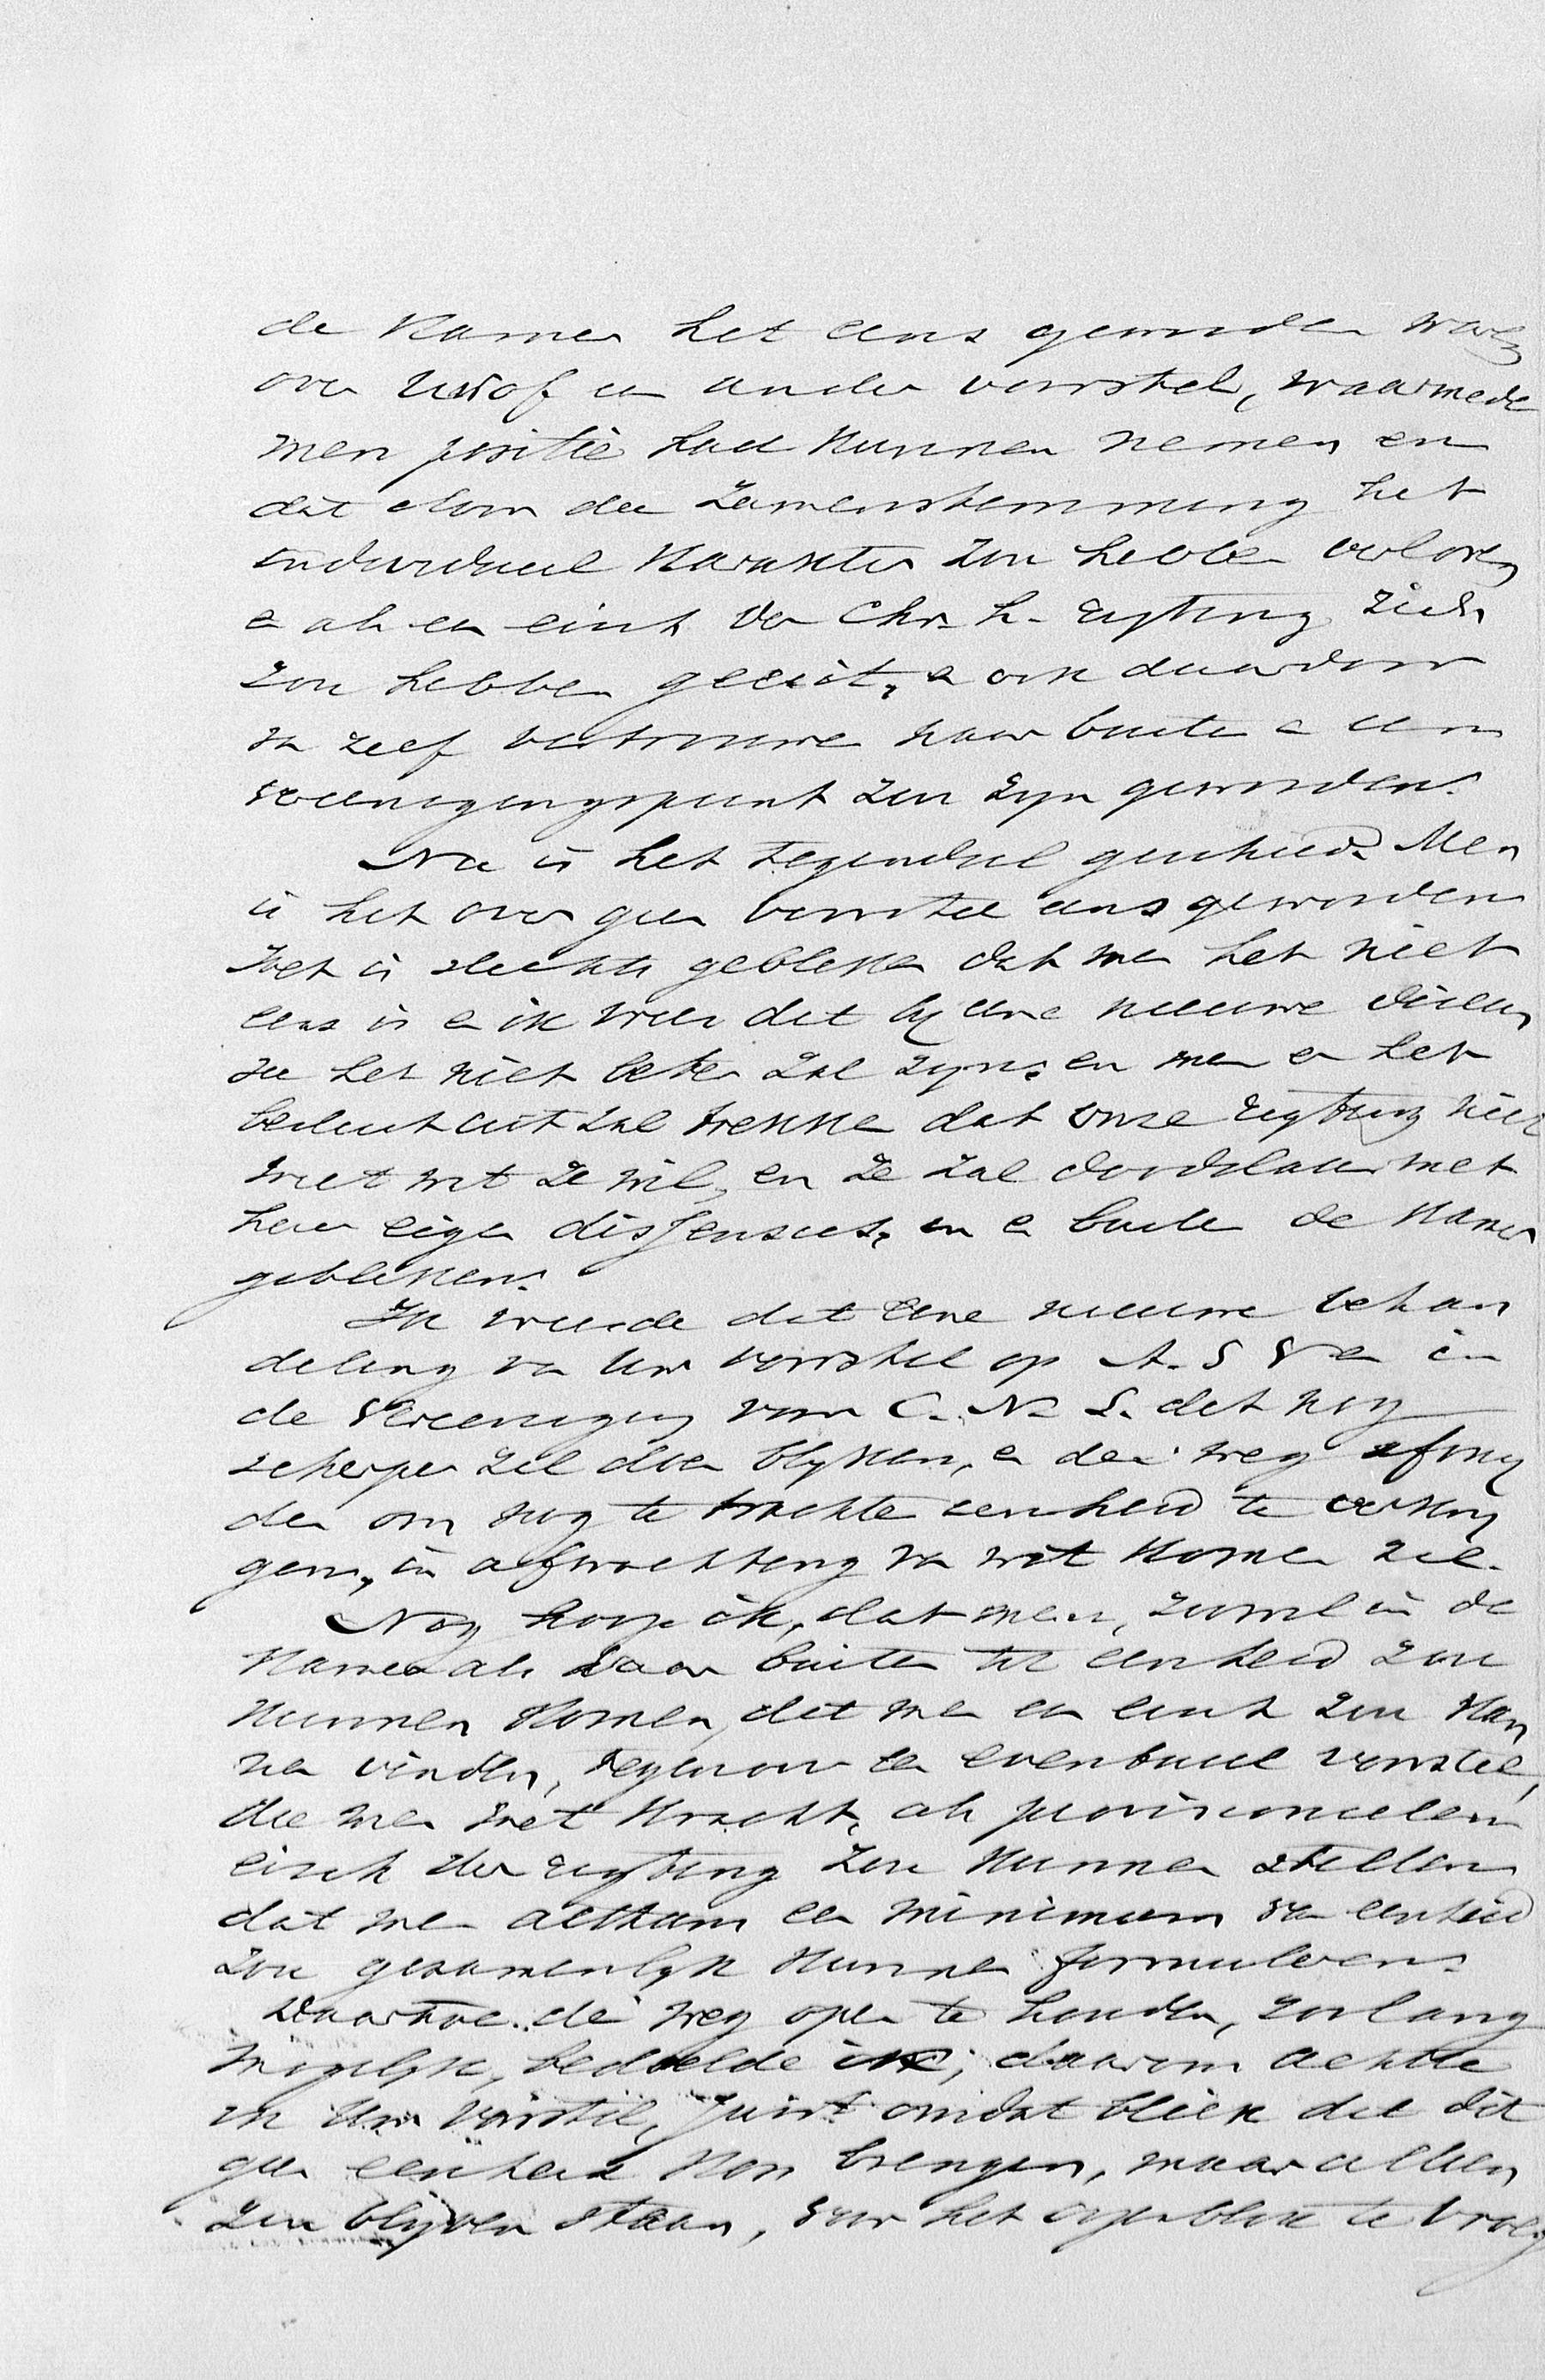 de Kamer het eens geworden waren
over Uw of een ander voorstel, waarmede
men positie had kunnen nemen en
dat door die zamenstemming het
individueel karakter zou hebben verloren
en als een eisch der Chr. h. rigting zich
zou hebben geuit, en ook daardoor
van zelf vertrouwen naar buiten en een
vereenigingspunt zou zyn geworden.
Nu is het tegendeel geschied. Men
is het over geen voorstel eens geworden
Het is slechts gebleken dat men het niet
eens is en ik vrees dat by eene nieuwe discus
sie het niet beter zal zyn, en men er het
besluit uit zal trekken dat onze rigting niet
weet wat ze wil, en ze zal doodslaan met
haar eigen dissensus, in en buiten de Kamer
gebleken.
Ik vreesde dat eene nieuwe behan
deling van Uw voorstel op A. S. in
de Vereeniging voor C. N. S. dat nog
scherper zal doen blyken, en den weg afsny
den om nog te trachten eenheid te verkry
gen, in afwachting van wat komen zal.
Nog hoop ik, dat men, zoowel in de
Kamer als daar buiten tot eenheid zou
kunnen komen, dat men een eisch zou kun
nen vinden, tegenover een eventueel voorstel,
die men met kracht, als provisioneelen
eisch der rigting zou kunnen stellen
dat men althans een minimum van eenheid
zou gezamenlyk kunnen formuleren.
Daartoe den weg open te houden, zoolang
mogelyk, bedoelde ik; daarom achtte
ik Uw voorstel, juist omdat bleek dat dit
geen eenheid kon brengen, maar alleen
zou blyven staan, voor het oogenblik te vroeg